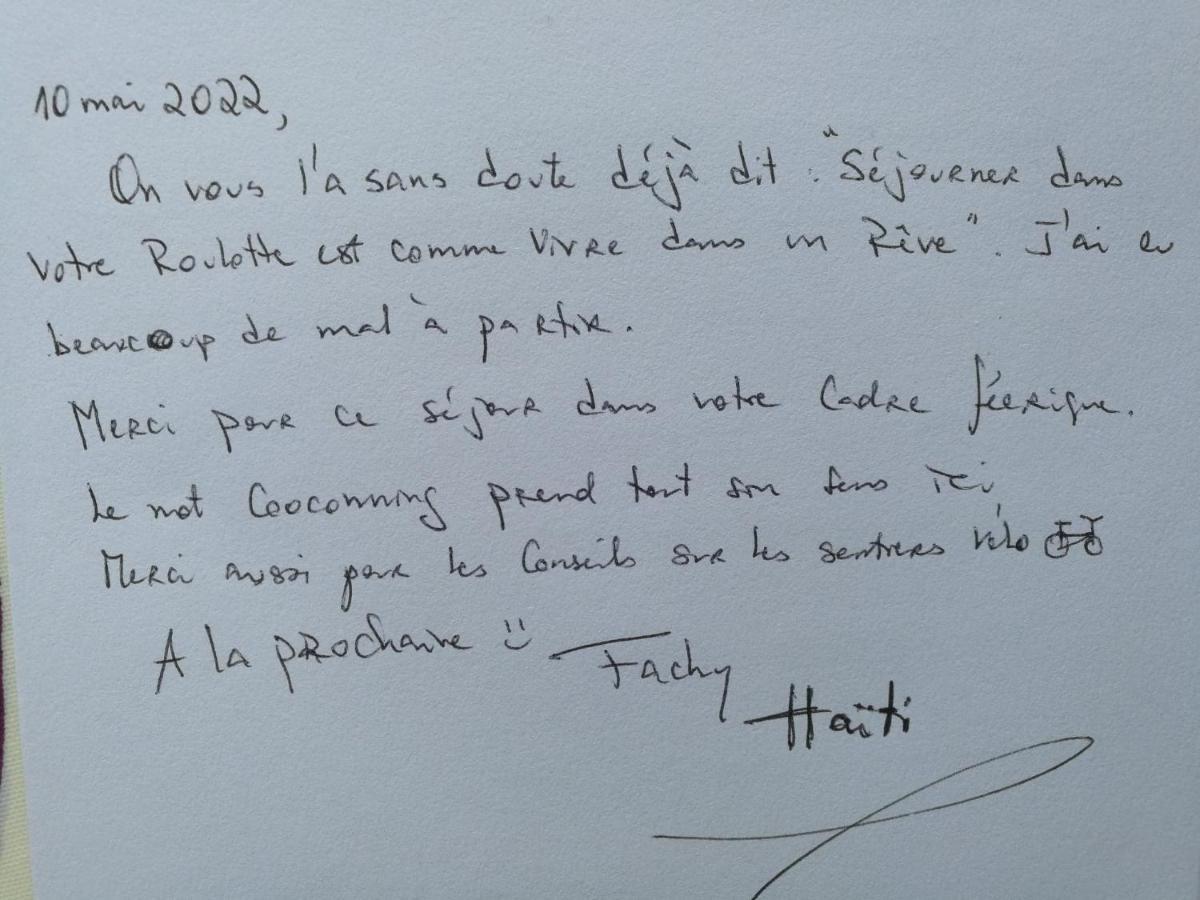 10 mai 2022,
On vous l'a sans doute déjà dit : "Séjourner dans
votre Roulotte est comme vivre dans un Rêve". J'ai eu
beaucoup de mal à partir.
Merci pour ce séjour dans votre Cadre féerique.
Le mot Cooconning prend tout son sens ici
Merci aussi pour les Conseils sur les sentiers vélo
A la prochaine :)
Fachy
Haïti